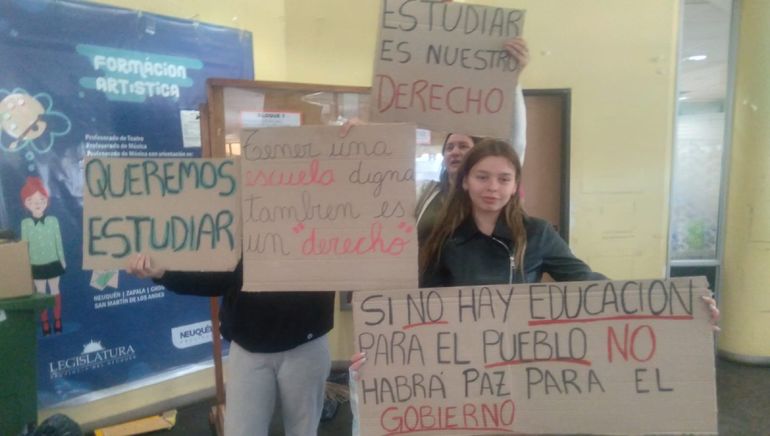 FORMACIÓN
ARTÍSTICA
Profesorado de Teatro
Profesorado de Música
Profesorado de Música con orientación
BLOQUE 1
ESTUDIAR
ES NUESTRO
DERECHO
QUEREMOS
ESTUDIAR
Tener una
escuela digna
tambren es
un "derecho"
SI NO HAY EDUCACION
PARA EL PUEBLO NO
HABRÁ PAZ PARA EL
GOBIERNO
NEUQUÉN | ZAPALA | CHOS
SAN MARTÍN DE LOS ANDES
NEUQUÉN
LEGISLATURA
PROVINCIA DEL NEUQUÉN